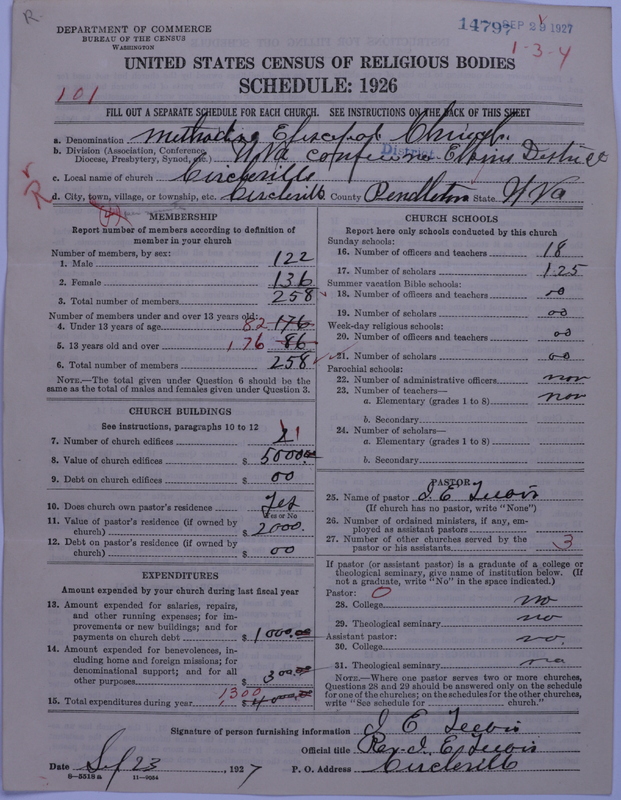 R.
DEPARTMENT OF COMMERCE
BUREAU OF THE CENSUS
WASHINGTON
14797 SEP 29 1927
1-3-4
UNITED STATES CENSUS OF RELIGIOUS BODIES
SCHEDULE: 1926
101
FILL OUT A SEPARATE SCHEDULE FOR EACH CHURCH. SEE INSTRUCTIONS ON THE BACK OF THIS SHEET
a. Denomination Methodist Episcopal Church
b. Division (Association, Conference, Diocese, Presbytery, Synod, etc.) W Va Conference District
c. Local name of church Circleville
R
d. City, town, village, or township, etc. Circleville County Pendleton State W Va
MEMBERSHIP
Report number of members according to definition of member in your church
Number of members, by sex:
1. Male 122
2. Female 136
3. Total number of members 258
Number of members under and over 13 years old:
4. Under 13 years of age 82 176
5. 13 years old and over 176 86
6. Total number of members 258
NOTE.—The total given under Question 6 should be the same as the total of males and females given under Question 3.
CHURCH BUILDINGS
See instructions, paragraphs 10 to 12
7. Number of church edifices 1
8. Value of church edifices $ 5000.00
9. Debt on church edifices $ 00
10. Does church own pastor's residence Yes
Yes or No
11. Value of pastor's residence (if owned by church) $ 2000.
12. Debt on pastor's residence (if owned by church) $ 00
EXPENDITURES
Amount expended by your church during last fiscal year
13. Amount expended for salaries, repairs, and other running expenses; for improvements or new buildings; and for payments on church debt $ 1000.00
14. Amount expended for benevolences, including home and foreign missions; for denominational support; and for all other purposes $ 300.00
15. Total expenditures during year 1,300 $
CHURCH SCHOOLS
Report here only schools conducted by this church
Sunday schools:
16. Number of officers and teachers 18
17. Number of scholars 125
Summer vacation Bible schools:
18. Number of officers and teachers 00
19. Number of scholars 00
Week-day religious schools:
20. Number of officers and teachers 00
21. Number of scholars 00
Parochial schools:
22. Number of administrative officers non
23. Number of teachers—
a. Elementary (grades 1 to 8) non
b. Secondary
24. Number of scholars—
a. Elementary (grades 1 to 8)
b. Secondary
PASTOR
25. Name of pastor I E
(If church has no pastor, write "None")
26. Number of ordained ministers, if any, employed as assistant pastors
27. Number of other churches served by the pastor or his assistants 3
If pastor (or assistant pastor) is a graduate of a college or theological seminary, give name of institution below. (If not a graduate, write "No" in the space indicated.)
Pastor: 0
28. College no
29. Theological seminary no
Assistant pastor:
30. College no.
31. Theological seminary no
NOTE.—Where one pastor serves two or more churches, Questions 28 and 29 should be answered only on the schedule for one of the churches; on the schedules for the other churches, write "See schedule for church."
Signature of person furnishing information I E
Official title Rev. I. E.
Date Sep 23, 1927 P. O. Address Circleville
6-5518a 11-9034